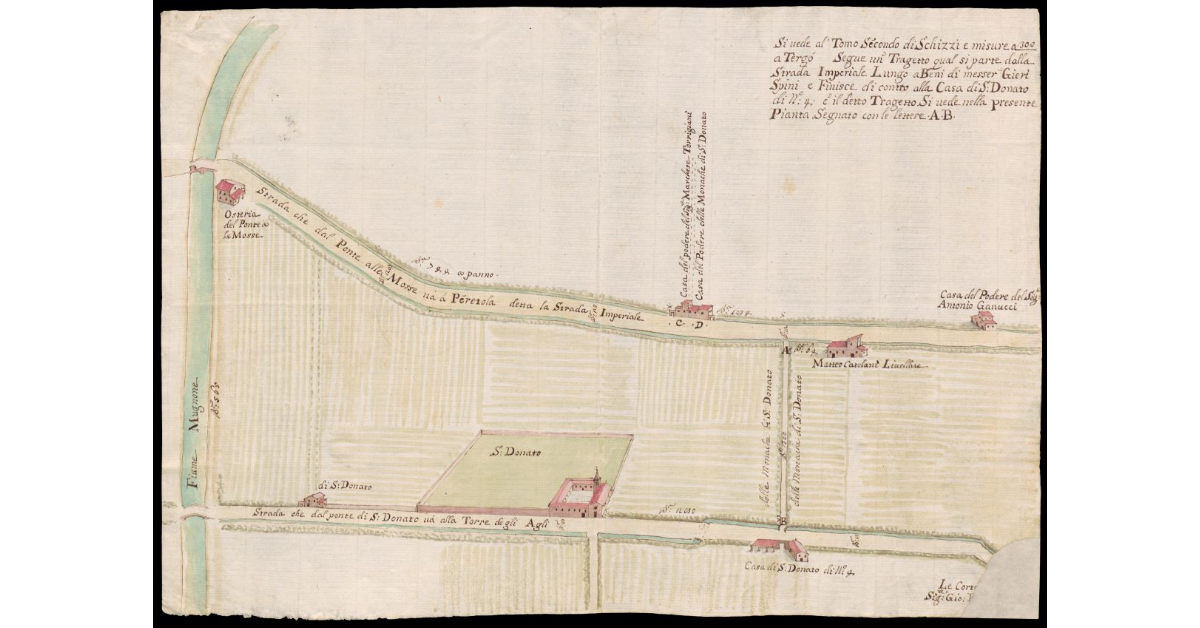 Si vede al Tomo Secondo di Schizzi e misure a 300
a Tergo Segue un Tragetto qual si parte dalla
Strada Imperiale Lungo a Beni di messer Gieri
Spini e Finisce di contro alla Casa di S. Donato
di N.o 4. e il detto Tragetto Si vede nella presente
Pianta Segnato con le lettere A.B.
Casa del podere del Sig.r Marchese Torrigiani
Casa del Podere delle Monache di S. Donato
Osteria
del Ponte a
la Mosse
Strada che dal Ponte alle Mosse va à Peretola detta la Strada Imperiale
a panno
C. D.
Casa del Podere del Sig.
Antonio Ganucci
A
Matteo Catelani Livellare
Fiume Mugnone
delle Monache di S. Donato
delle Monache di S. Donato
S. Donato
di S. Donato
Strada che dal ponte di S. Donato va alla Torre degli Agli
B
Casa di S. Donato di N.o 4.
Le Cor
Sig. Gio.